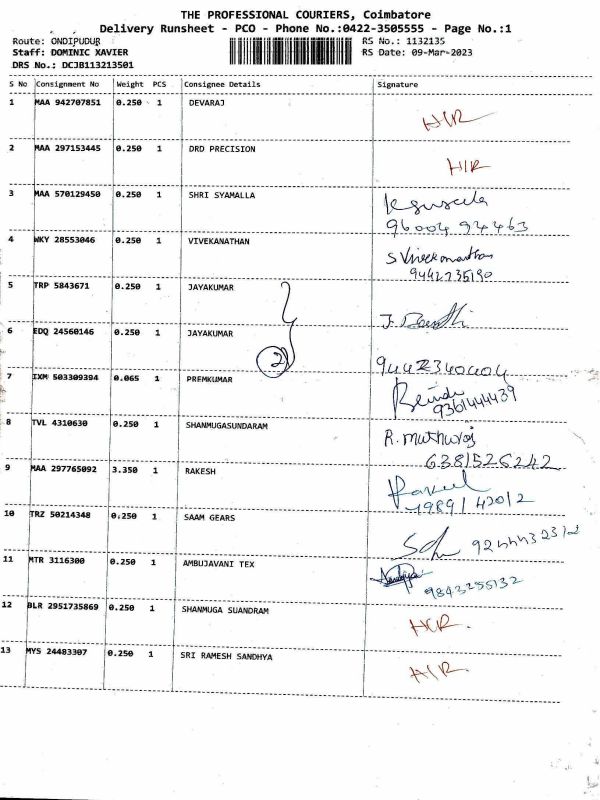 THE PROFESSIONAL COURIERS, Coimbatore
Delivery Runsheet - PCO - Phone No.:0422-3505555 - Page No.:1
Route: ONDIPUDUR RS No.: 1132135
Staff: DOMINIC XAVIER RS Date: 09-Mar-2023
DRS No.: DCJB113213501
S No Consignment No Weight PCS Consignee Details Signature
1 MAA 942707851 0.250 1 DEVARAJ
2 MAA 297153445 0.250 1 DRD PRECISION
H/R
3 MAA 570129450 0.250 1 SHRI SYAMALLA
96004 94463
4 WKY 28553046 0.250 1 VIVEKANATHAN
S Vivekananthan
9442235190
5 TRP 5843671 0.250 1 JAYAKUMAR
6 EDQ 24560146 0.250 1 JAYAKUMAR
2
7 IXM 503309394 0.065 1 PREMKUMAR
9361444439
8 TVL 4310630 0.250 1 SHANMUGASUNDARAM
R. Muthuraj
6381526242
9 MAA 297765092 3.350 1 RAKESH
10 TRZ 50214348 0.250 1 SAAM GEARS
11 MTR 3116300 0.250 1 AMBUJAVANI TEX
9843255132
12 BLR 2951735869 0.250 1 SHANMUGA SUANDRAM
13 MYS 24483307 0.250 1 SRI RAMESH SANDHYA
H/R